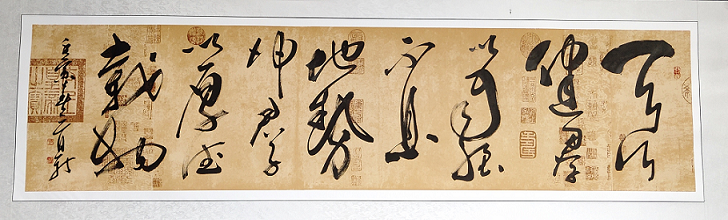 天行
健君子
以自強
不息
地勢
坤君子
以厚德
載物
壬寅